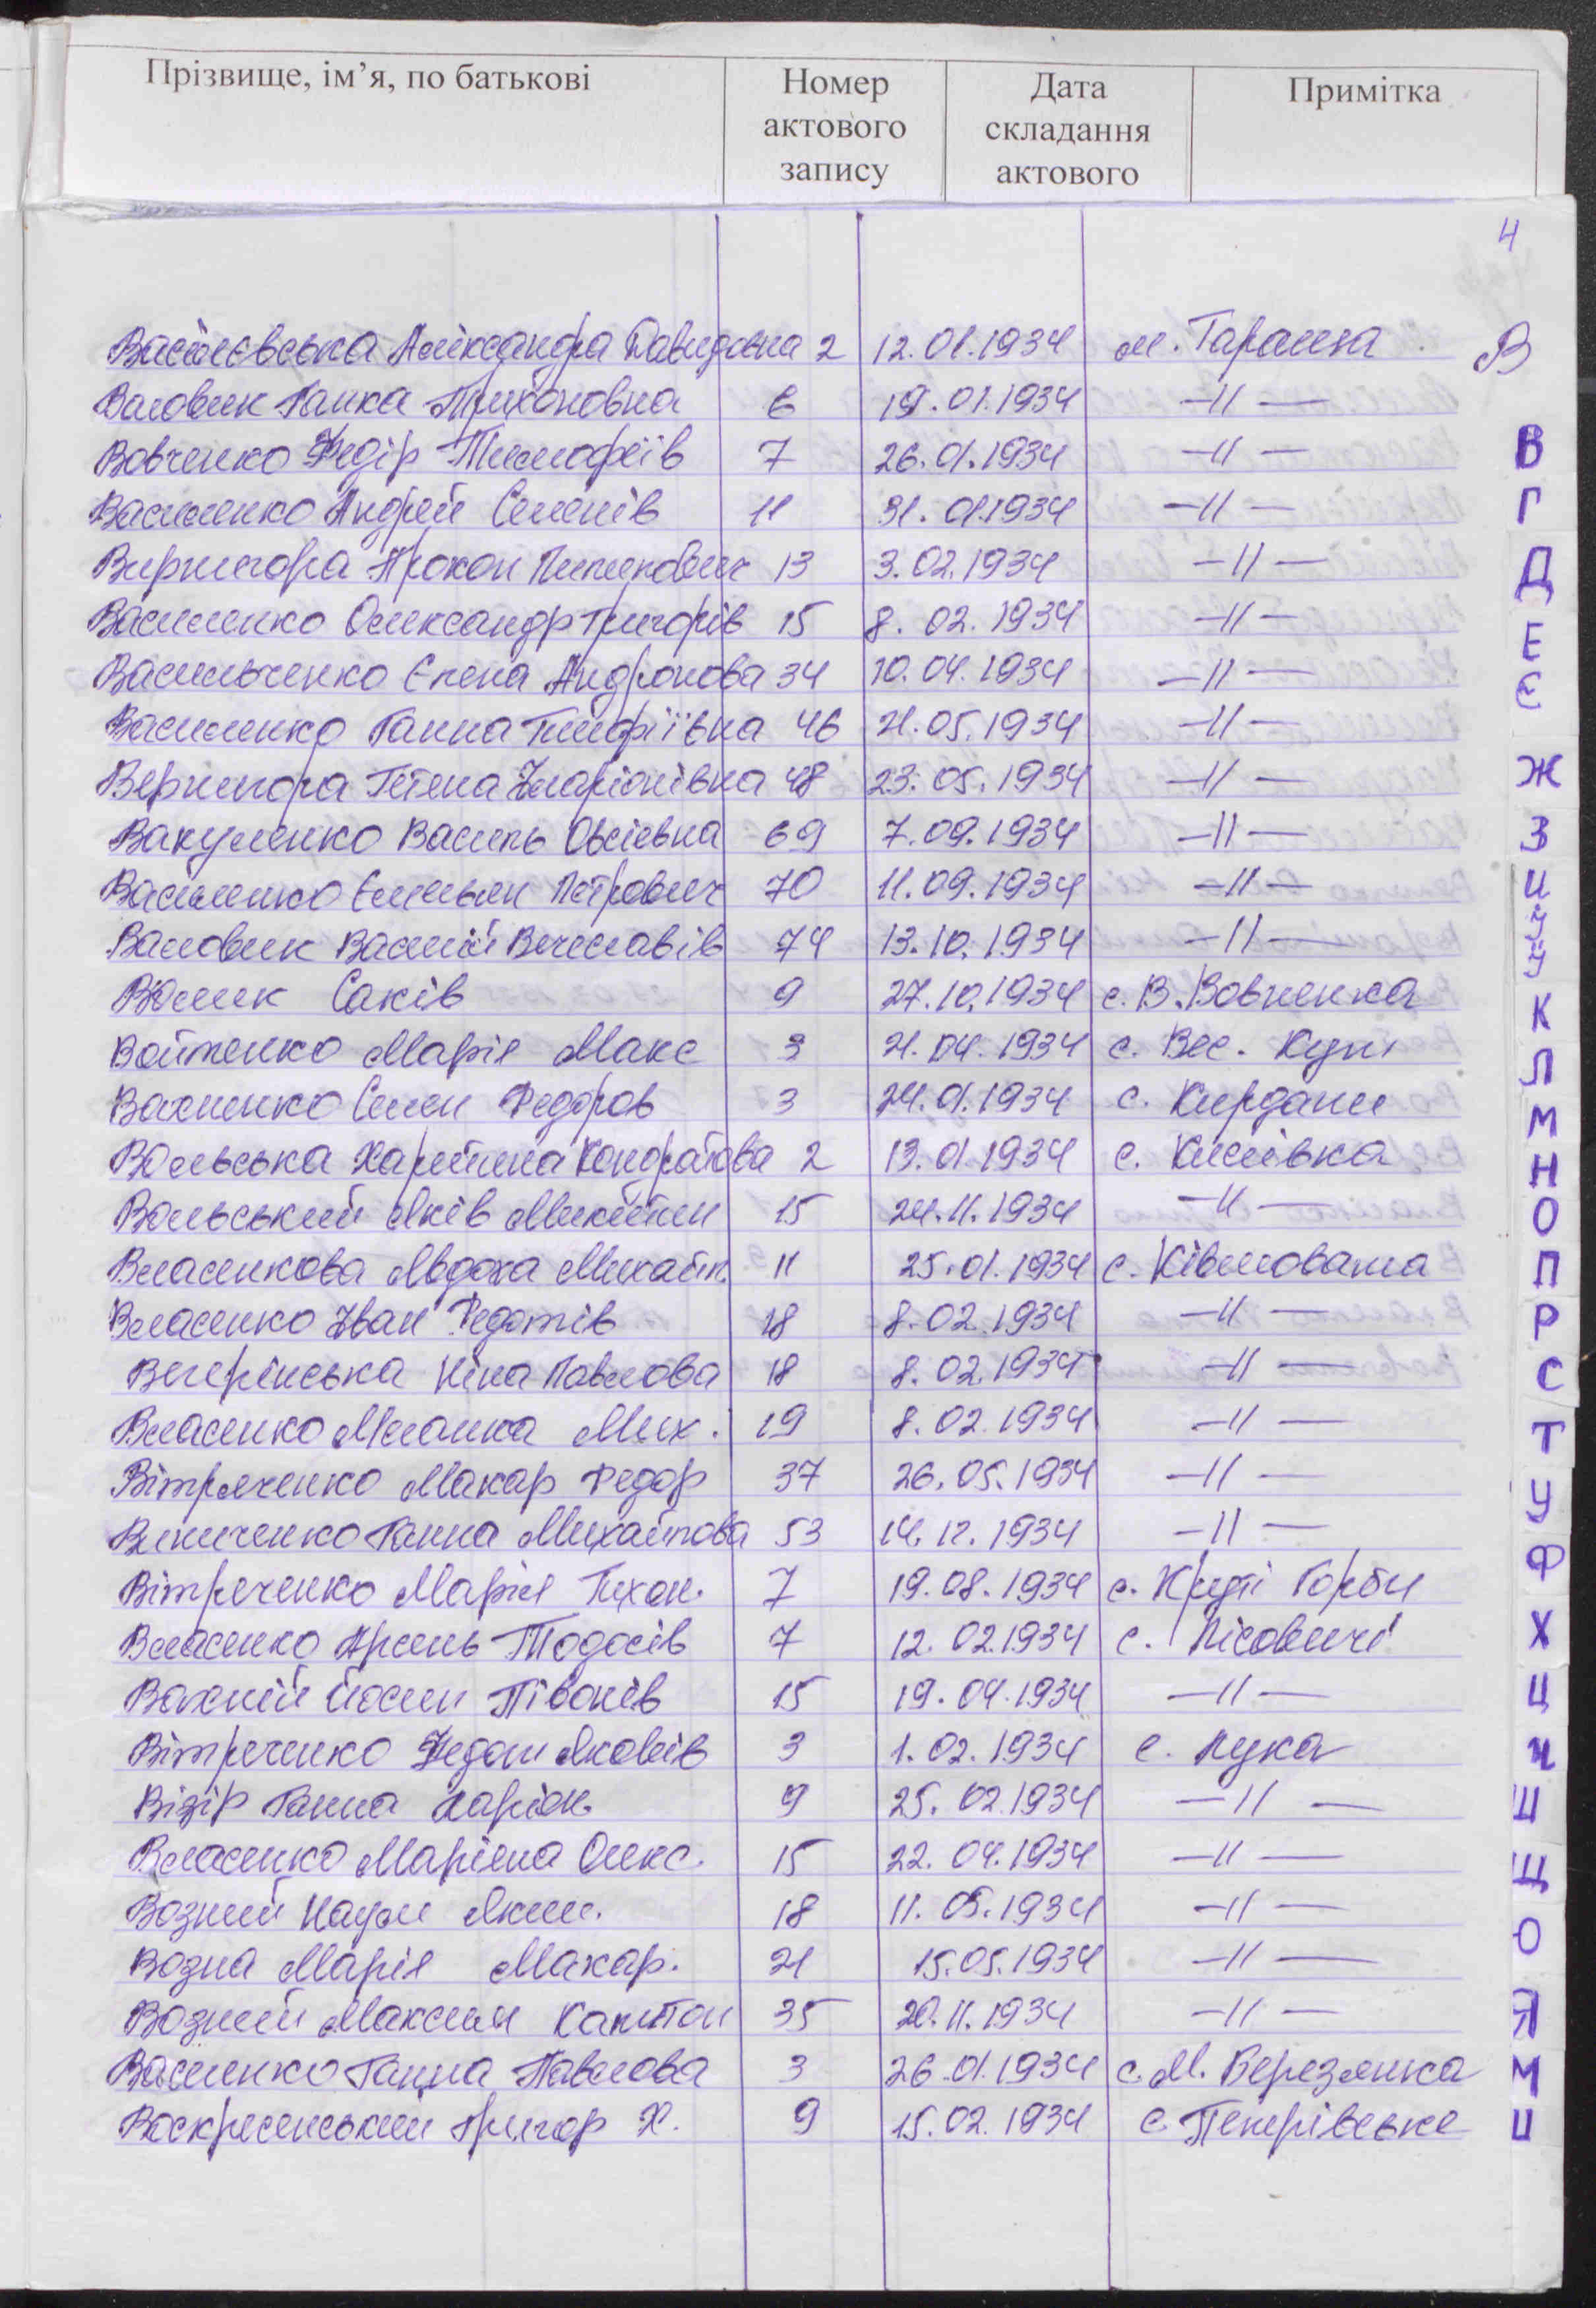 Прізвище, ім’я, по батькові
Номер актового запису
Дата складання актового
Примітка
4
В
Васілєвська Аліксандра Давидовна 2 12.01.1934 м. Тараща
Валовик Ганка Трихоновна 6 19.01.1934 –//–
Вовченко Федір Тимофеїв 7 26.01.1934 –//–
Василенко Андрей Семенів 11 31.01.1934 –//–
Вирнигора Прокоп Пилипович 13 3.02.1934 –//–
Василенко Олександр Григорів 15 8.02.1934 –//–
Васильченко Єлена Андронова 34 10.04.1934 –//–
Василенко Ганна Тимофіївна 46 21.05.1934 –//–
Вернигора Гетена Іларіонівна 48 23.05.1934 –//–
Вакуленко Василь Овсієвна 69 7.09.1934 –//–
Василенко Емельян Петрович 70 11.09.1934 –//–
Валовик Василій Вячеславів 74 13.10.1934 –//–
Волик Саків 9 27.10.1934 с. В. Вовнянка
Войтенко Марія Макс 3 21.04.1934 с. Вес. Кути
Вахненко Семен Федоров 3 24.01.1934 с. Кирдани
Вольська Харитина Кондратова 2 13.01.1934 с. Кислівка
Вольський Яків Микитин 15 24.11.1934 –//–
Власенкова Явдоха Михайл. 11 25.01.1934 с. Ківшовата
Власенко Іван Федотів 18 8.02.1934 –//–
Вегерінська Ніна Павлова 18 8.02.1934 –//–
Власенко Меланка Мих. 19 8.02.1934 –//–
Вітряченко Макар Федор 37 26.05.1934 –//–
Виниченко Ганна Михайлова 53 14.12.1934 –//–
Вітреченко Марія Тихон. 7 19.08.1934 с. Круті Горби
Власенко Арсень Тодосів 7 12.02.1934 с. Лісовичі
Вахній Йосип Півонів 15 19.04.1934 –//–
Вітреченко Федот Яковів 3 1.02.1934 с. Лука
Візір Ганна Ларіон. 9 25.02.1934 –//–
Власенко Маріяна Олекс. 15 22.04.1934 –//–
Возний Наум Яким. 18 11.05.1934 –//–
Возна Марія Макар. 21 15.05.1934 –//–
Возний Максим Капитон 35 20.11.1934 –//–
Василенко Ганна Павлова 3 26.01.1934 с. М. Березянка
Воскресенський Григор Х. 9 15.02.1934 с. Петрівське
В
Г
Д
Е
Є
Ж
З
И
К
Л
М
Н
О
П
Р
С
Т
У
Ф
Х
Ц
Ч
Ш
Щ
Ю
Я
М